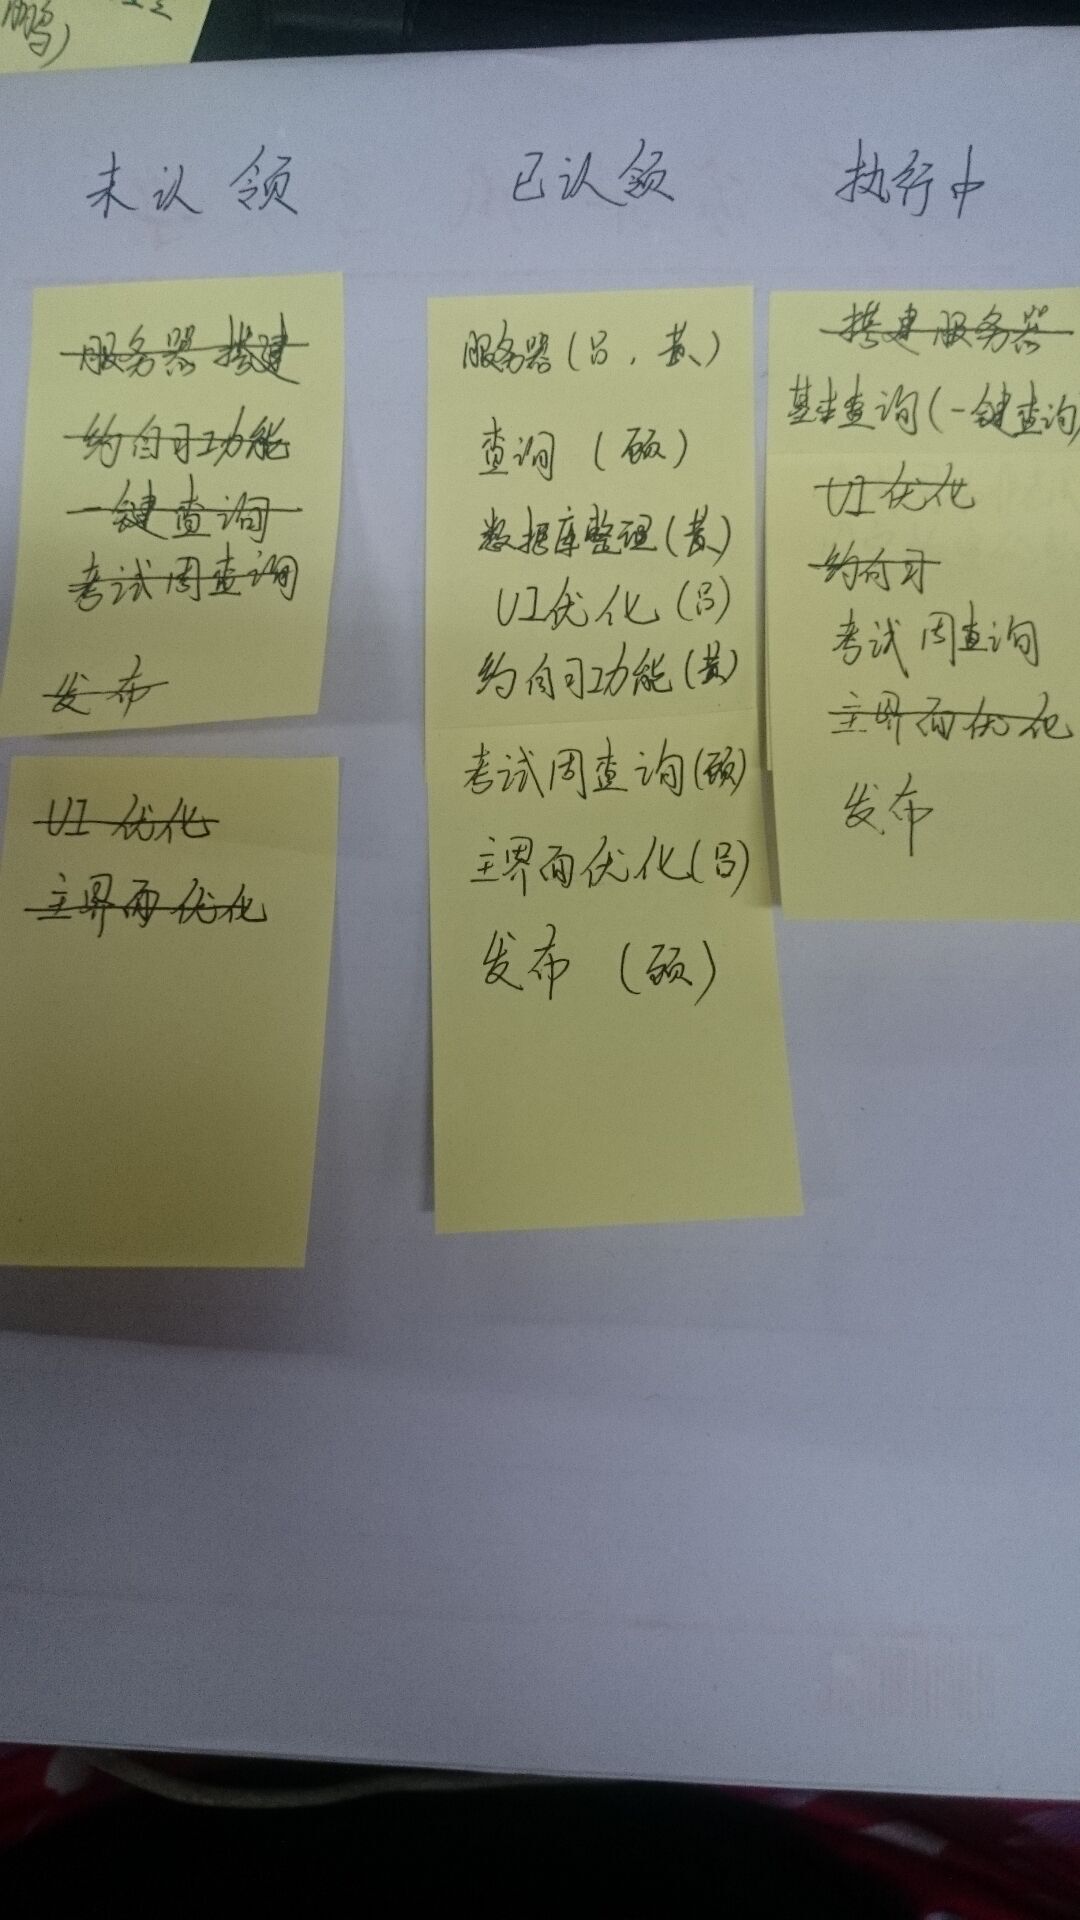 鹏)
未认领
已认领
执行中
服务器搭建
约自习功能
一键查询
考试周查询
发布
UI优化
主界面优化
服务器(吕、黄)
查询(顾)
数据库整理(黄)
UI优化(吕)
约自习功能(黄)
考试周查询(顾)
主界面优化(吕)
发布(顾)
搭建服务器
基本查询(一键查询)
UI优化
约自习
考试周查询
主界面优化
发布